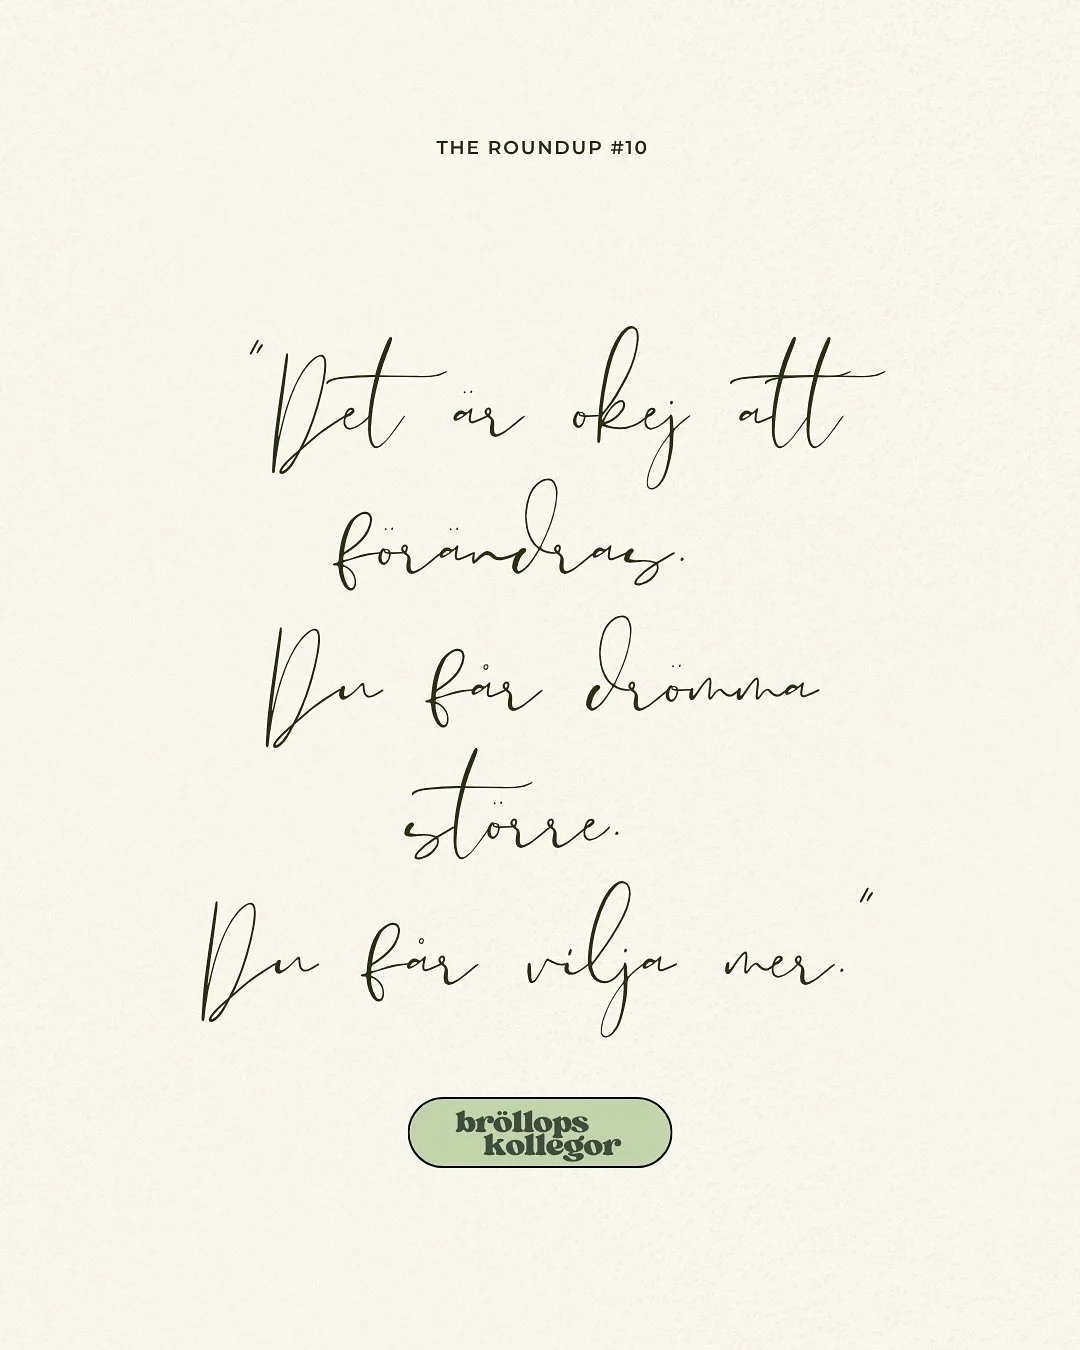 THE ROUNDUP #10
"Det är okej att
förändras.
Du får drömma
större.
Du får vilja mer."
bröllops
kollegor